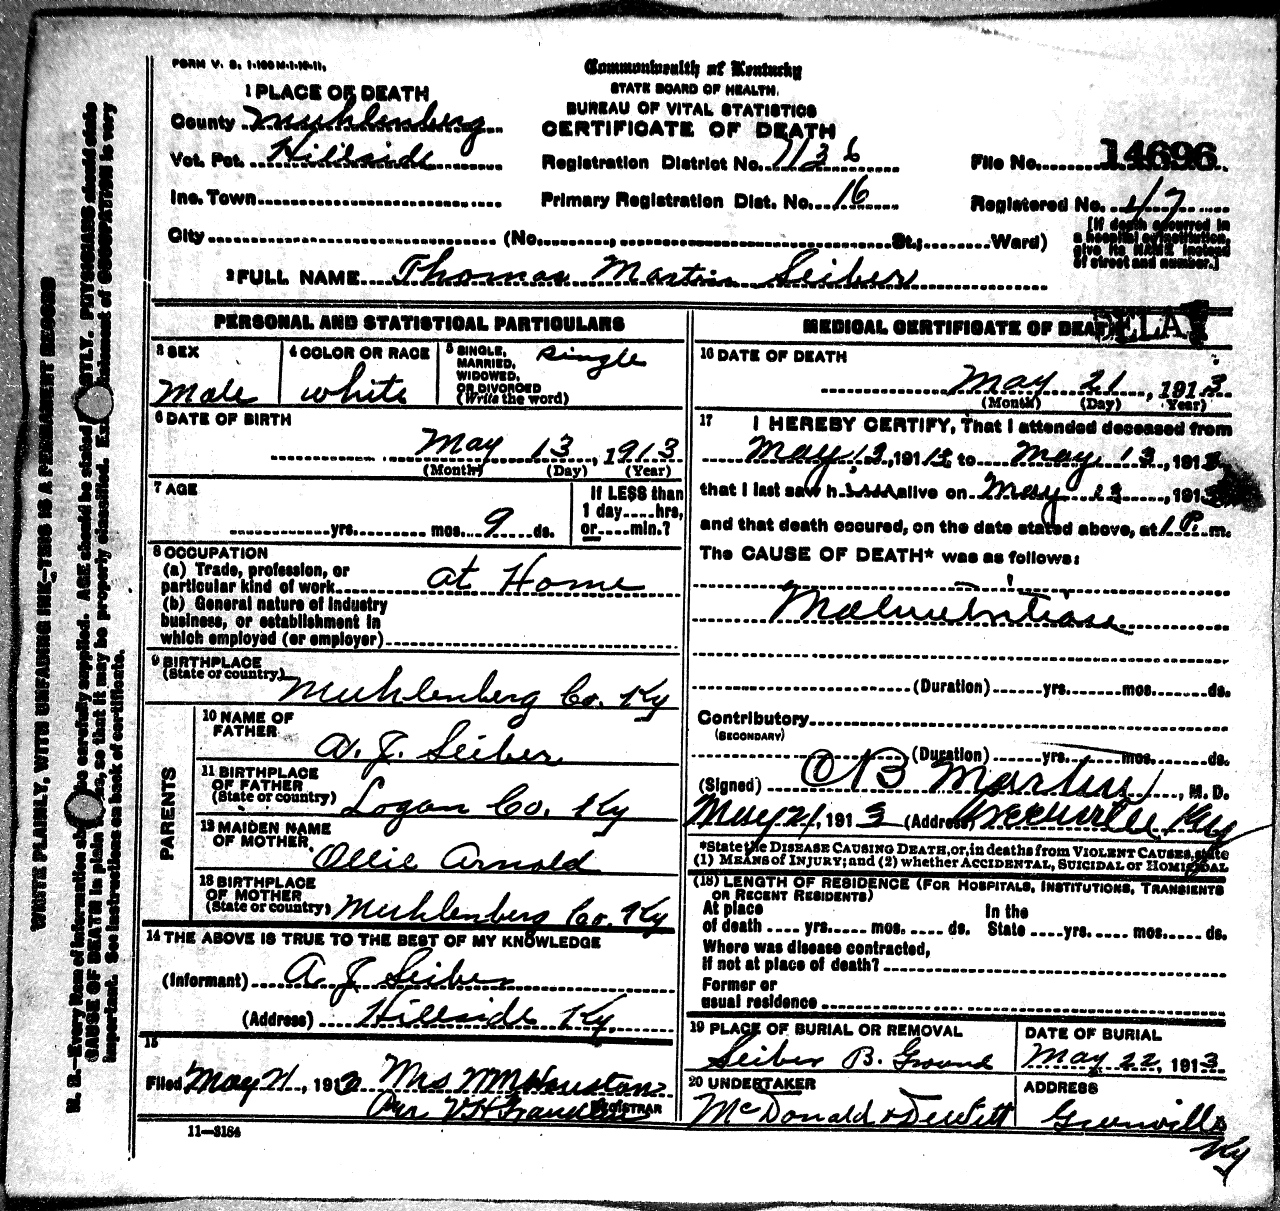 FORM V. S. 1-100 M-1-10-11.
Commonwealth of Kentucky
STATE BOARD OF HEALTH.
BUREAU OF VITAL STATISTICS
CERTIFICATE OF DEATH
1 PLACE OF DEATH
County Muhlenberg
Vot. Pct. Hillside
Inc. Town
Registration District No. 1136
Primary Registration Dist. No. 16
File No. 14696
Registered No. 47
City (No. , St.; Ward)
[If death occurred in
a hospital or institution,
give its NAME instead
of street and number.]
2 FULL NAME Thomas Martin Seiber
PERSONAL AND STATISTICAL PARTICULARS
3 SEX
Male
4 COLOR OR RACE
white
5 SINGLE,
MARRIED,
WIDOWED,
OR DIVORCED
(Write the word)
Single
6 DATE OF BIRTH
May 13, 1913
(Month) (Day) (Year)
7 AGE
yrs. mos. 9 ds.
If LESS than
1 day hrs,
or min.?
8 OCCUPATION
(a) Trade, profession, or
particular kind of work at Home
(b) General nature of industry
business, or establishment in
which employed (or employer)
9 BIRTHPLACE
(State or country) Muhlenberg Co. Ky
PARENTS
10 NAME OF
FATHER
A. J. Seiber
11 BIRTHPLACE
OF FATHER
(State or country) Logan Co. Ky
12 MAIDEN NAME
OF MOTHER
Ollie Arnold
13 BIRTHPLACE
OF MOTHER
(State or country) Muhlenberg Co. Ky
14 THE ABOVE IS TRUE TO THE BEST OF MY KNOWLEDGE
(Informant) A J Seiber
(Address) Hillside Ky
15
Filed May 21, 1913 Mrs WM Houston
Per V H
REGISTRAR
11—3184
MEDICAL CERTIFICATE OF DEATH
DELAY
16 DATE OF DEATH
May 21, 1913
(Month) (Day) Year)
17 I HEREBY CERTIFY, That I attended deceased from
May 13, 1913 to May 13, 1913
that I last saw him alive on May 13, 1913
and that death occured, on the date stated above, at 1 P. m.
The CAUSE OF DEATH* was as follows:
Malnutrition
(Duration) yrs. mos. ds.
Contributory
(SECONDARY)
(Duration) yrs. mos. ds.
(Signed) Martin, M. D.
May 21, 1913 (Address) Greenville Ky
*State the DISEASE CAUSING DEATH, or, in deaths from VIOLENT CAUSES, state
(1) MEANS of INJURY; and (2) whether ACCIDENTAL, SUICIDAL or HOMICIDAL
(18) LENGTH OF RESIDENCE (FOR HOSPITALS, INSTITUTIONS, TRANSIENTS
OR RECENT RESIDENTS)
At place
of death yrs. mos. ds.
In the
State yrs. mos. ds.
Where was disease contracted,
If not at place of death?
Former or
usual residence
19 PLACE OF BURIAL OR REMOVAL
Seiber B. Ground
DATE OF BURIAL
May 22, 1913
20 UNDERTAKER
McDonald & Dewitt
ADDRESS
Greenville
Ky
WRITE PLAINLY, WITH UNFADING INK—THIS IS A PERMANENT RECORD
N. B.—Every item of information should be carefully supplied. AGE should be stated EXACTLY. PHYSICIANS should state
CAUSE OF DEATH in plain terms, so that it may be properly classified. Exact statement of OCCUPATION is very
important. See instructions on back of certificate.